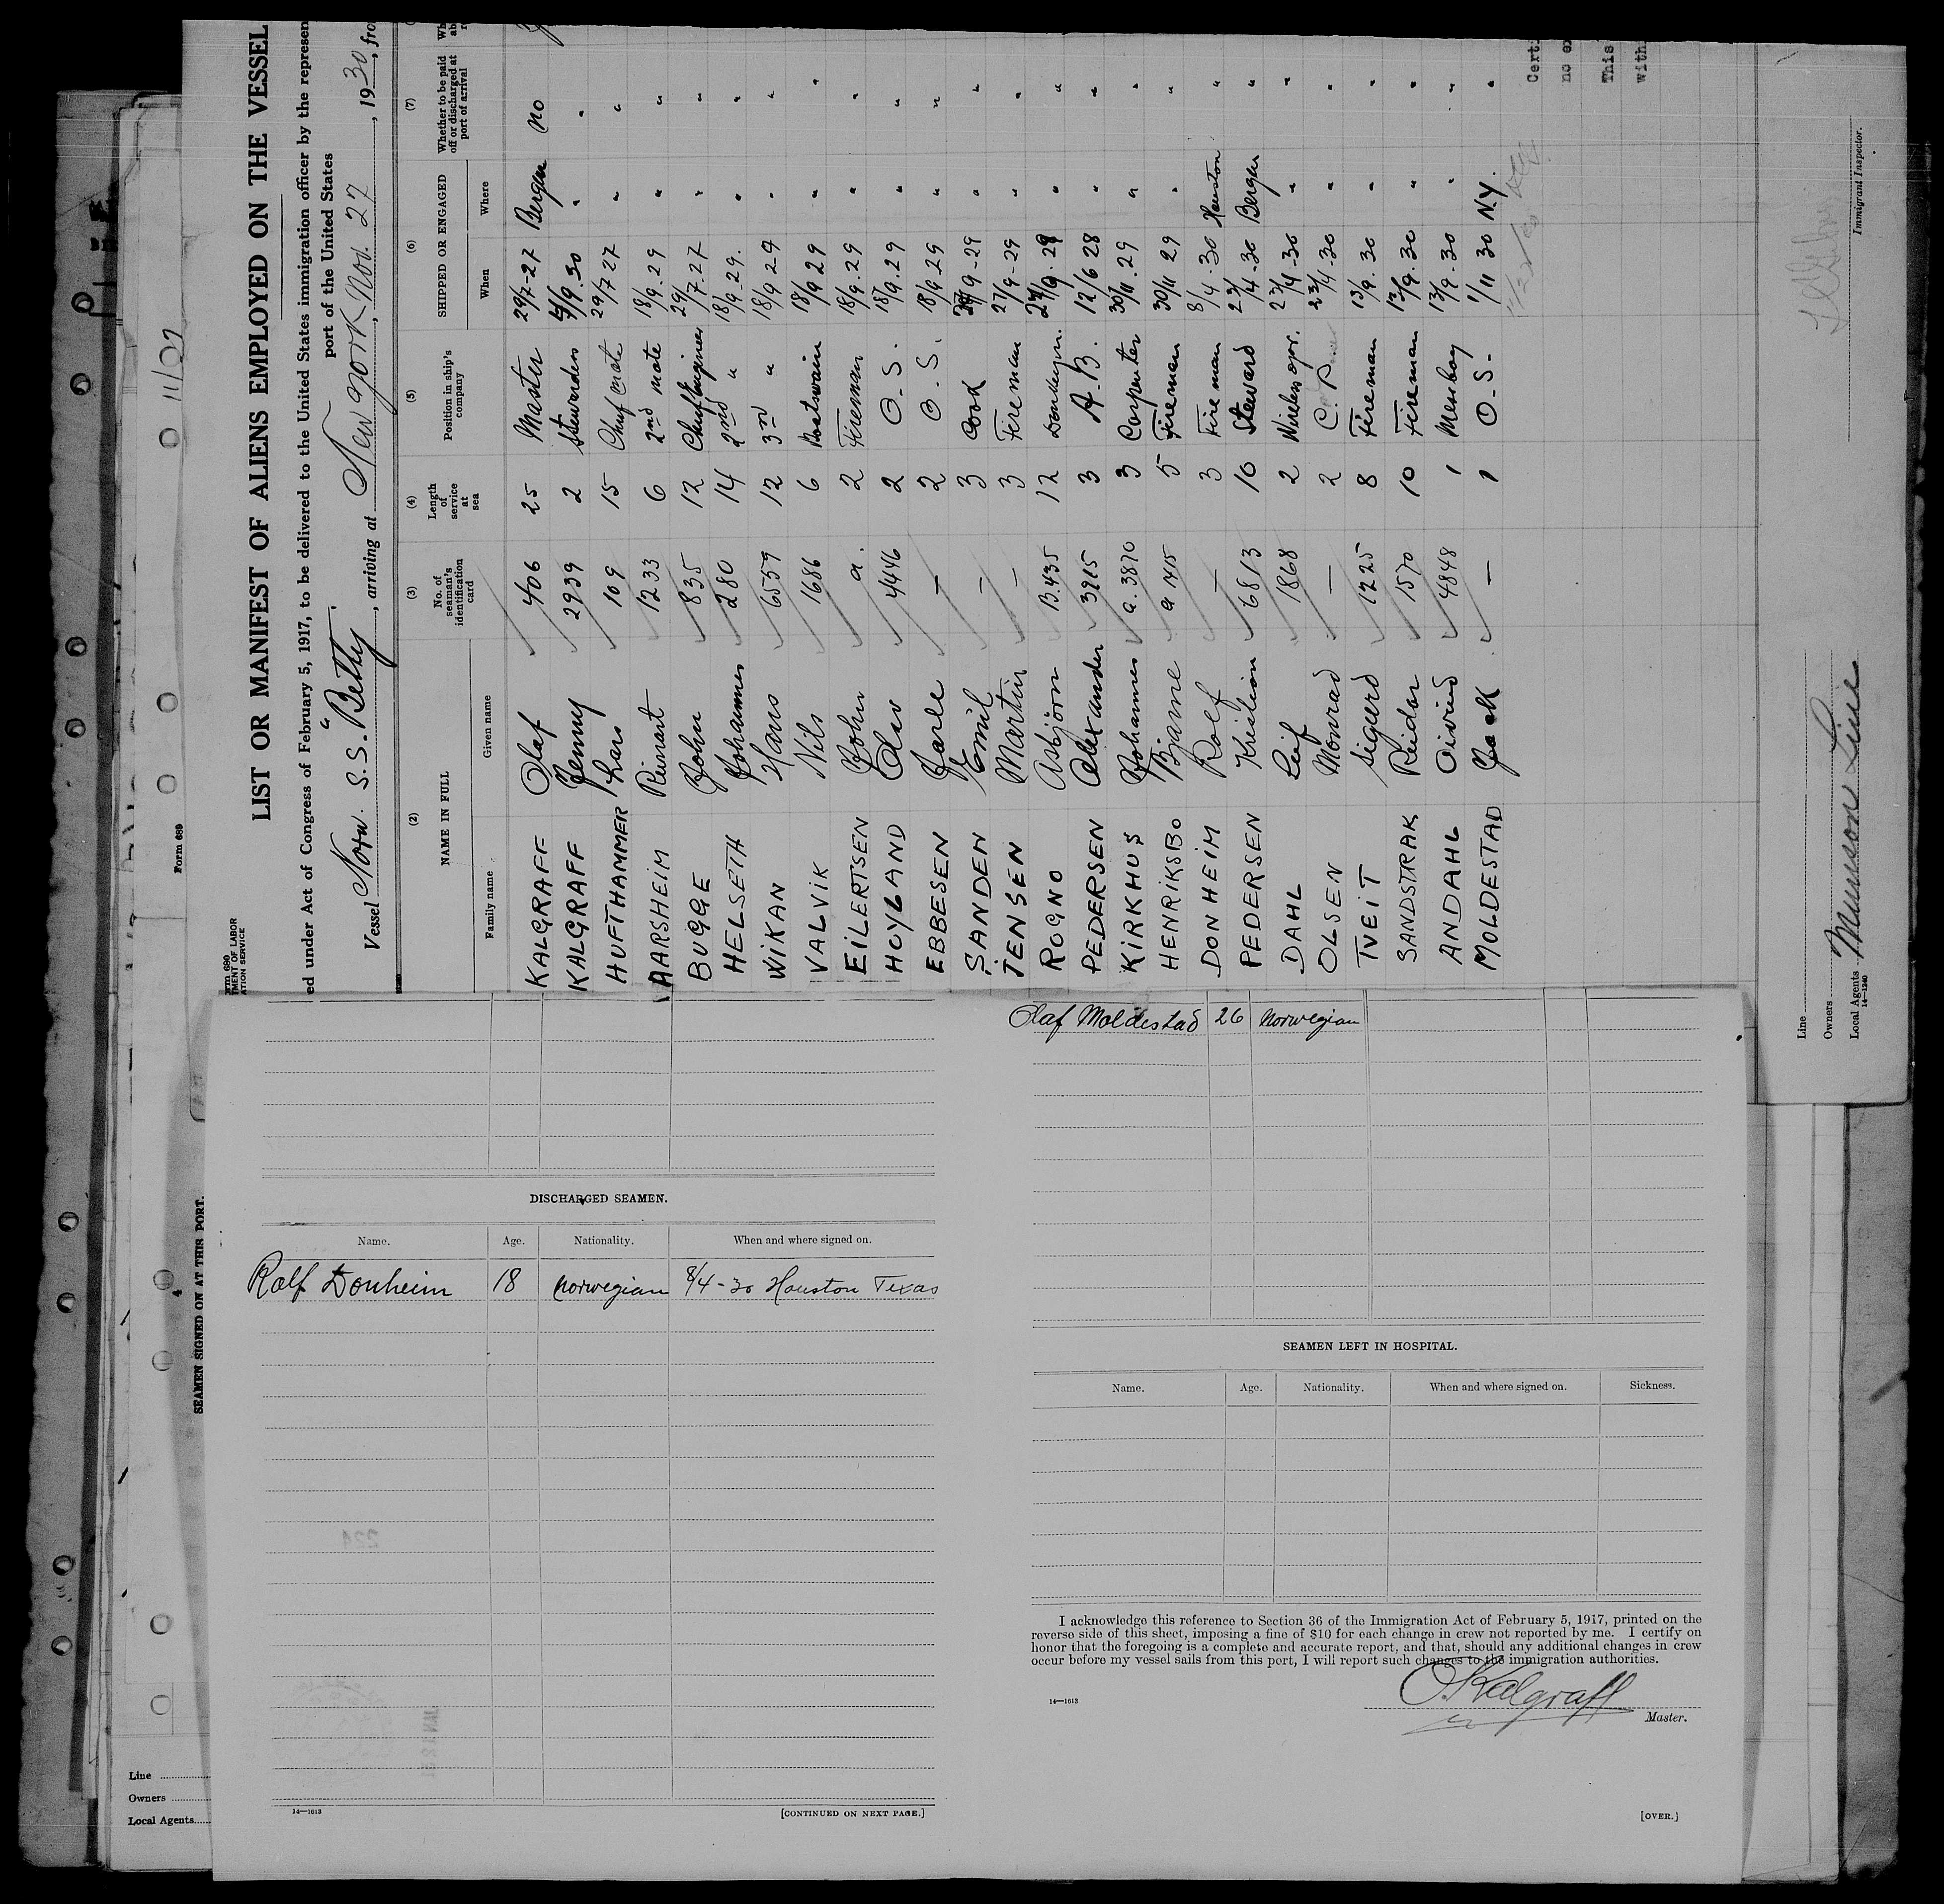 LIST OR MANIFEST OF ALIENS EMPLOYED ON THE VESSEL
ed under Act of Congress of February 5, 1917, to be delivered to the United States immigration officer by the represen
port of the United States
Vessel Norw. S.S. "Betty", arriving at New York, Nov. 27, 1930, fro
(2) (3) (4) (5) (6) (7)
NAME IN FULL No. of seaman's identification card Length of service at sea Position in ship's company SHIPPED OR ENGAGED Whether to be paid off or discharged at port of arrival
Family name Given name When Where
KALGRAFF Olaf 406 25 Master 29/7-27 Bergen no
KALGRAFF Jenny 2939 2 Stewardess /9.30 " "
HUFTHAMMER Lars 109 15 Chief mate 29/7 27 " "
AARSHEIM 1233 6 2nd mate 18/9.29 " "
BUGGE John 835 12 Chief Engineer 29/7.27 " "
HELSETH Johannes 280 14 2nd " 18/9.29. " "
WIKAN Hans 6559 12 3rd " 18/9 29 " "
VALVIK Nils 1686 6 Boatswain 18/9 29 " "
EILERTSEN John a. 2 Fireman 18/9.29 " "
HOYLAND Olav 4446 2 O.S. 18/9.29 " "
EBBESEN Jarle — 2 O.S. 18/9.29 " "
SANDEN Emil — 3 Cook /9-29 " "
JENSEN Martin — 3 Fireman 27/9-29 " "
ROGNO Asbjörn B.435 12 Donkeym. 27/9.29 " "
PEDERSEN Alexander 3915 3 A.B. 12/6 28 " "
KIRKHUS Johannes a.3870 3 Carpenter 30/11.29 " "
HENRIKSBO Bjarne 5 Fireman 30/11 29 " "
DONHEIM Rolf — 3 Fireman 8/4.30 Houston "
PEDERSEN Kristian 6813 10 Steward 23/4-30 Bergen "
DAHL Leif 1868 2 Wireless opr. 23/4-30 " "
OLSEN Monrad — 2 23/4-30 " "
TVEIT Sigurd 1225 8 Fireman 13/9.30 " "
SANDSTRAK Reidar 1570 10 Fireman 13/9.30 " "
ANDAHL Oivind 4848 1 Messboy 13/9.30 " "
MOLDESTAD — 1 O.S. 1/11 30 N.Y. "
Certi
no ex
This
with
Immigrant Inspector.
Line
Owners
Local Agents Munson Line
14—1240
Form 689
11/27
SEAMEN SIGNED ON AT THIS PORT.
Line
Owners
Local Agents
DISCHARGED SEAMEN.
Name. Age. Nationality. When and where signed on.
Rolf Donheim 18 Norwegian 8/4-30 Houston Texas
14—1613
[CONTINUED ON NEXT PAGE.]
Olaf Moldestad 26 Norwegian
SEAMEN LEFT IN HOSPITAL.
Name. Age. Nationality. When and where signed on. Sickness.
I acknowledge this reference to Section 36 of the Immigration Act of February 5, 1917, printed on the
reverse side of this sheet, imposing a fine of $10 for each change in crew not reported by me. I certify on
honor that the foregoing is a complete and accurate report, and that, should any additional changes in crew
occur before my vessel sails from this port, I will report such changes to the immigration authorities.
14—1613
O. Kalgraff
Master.
[OVER.]